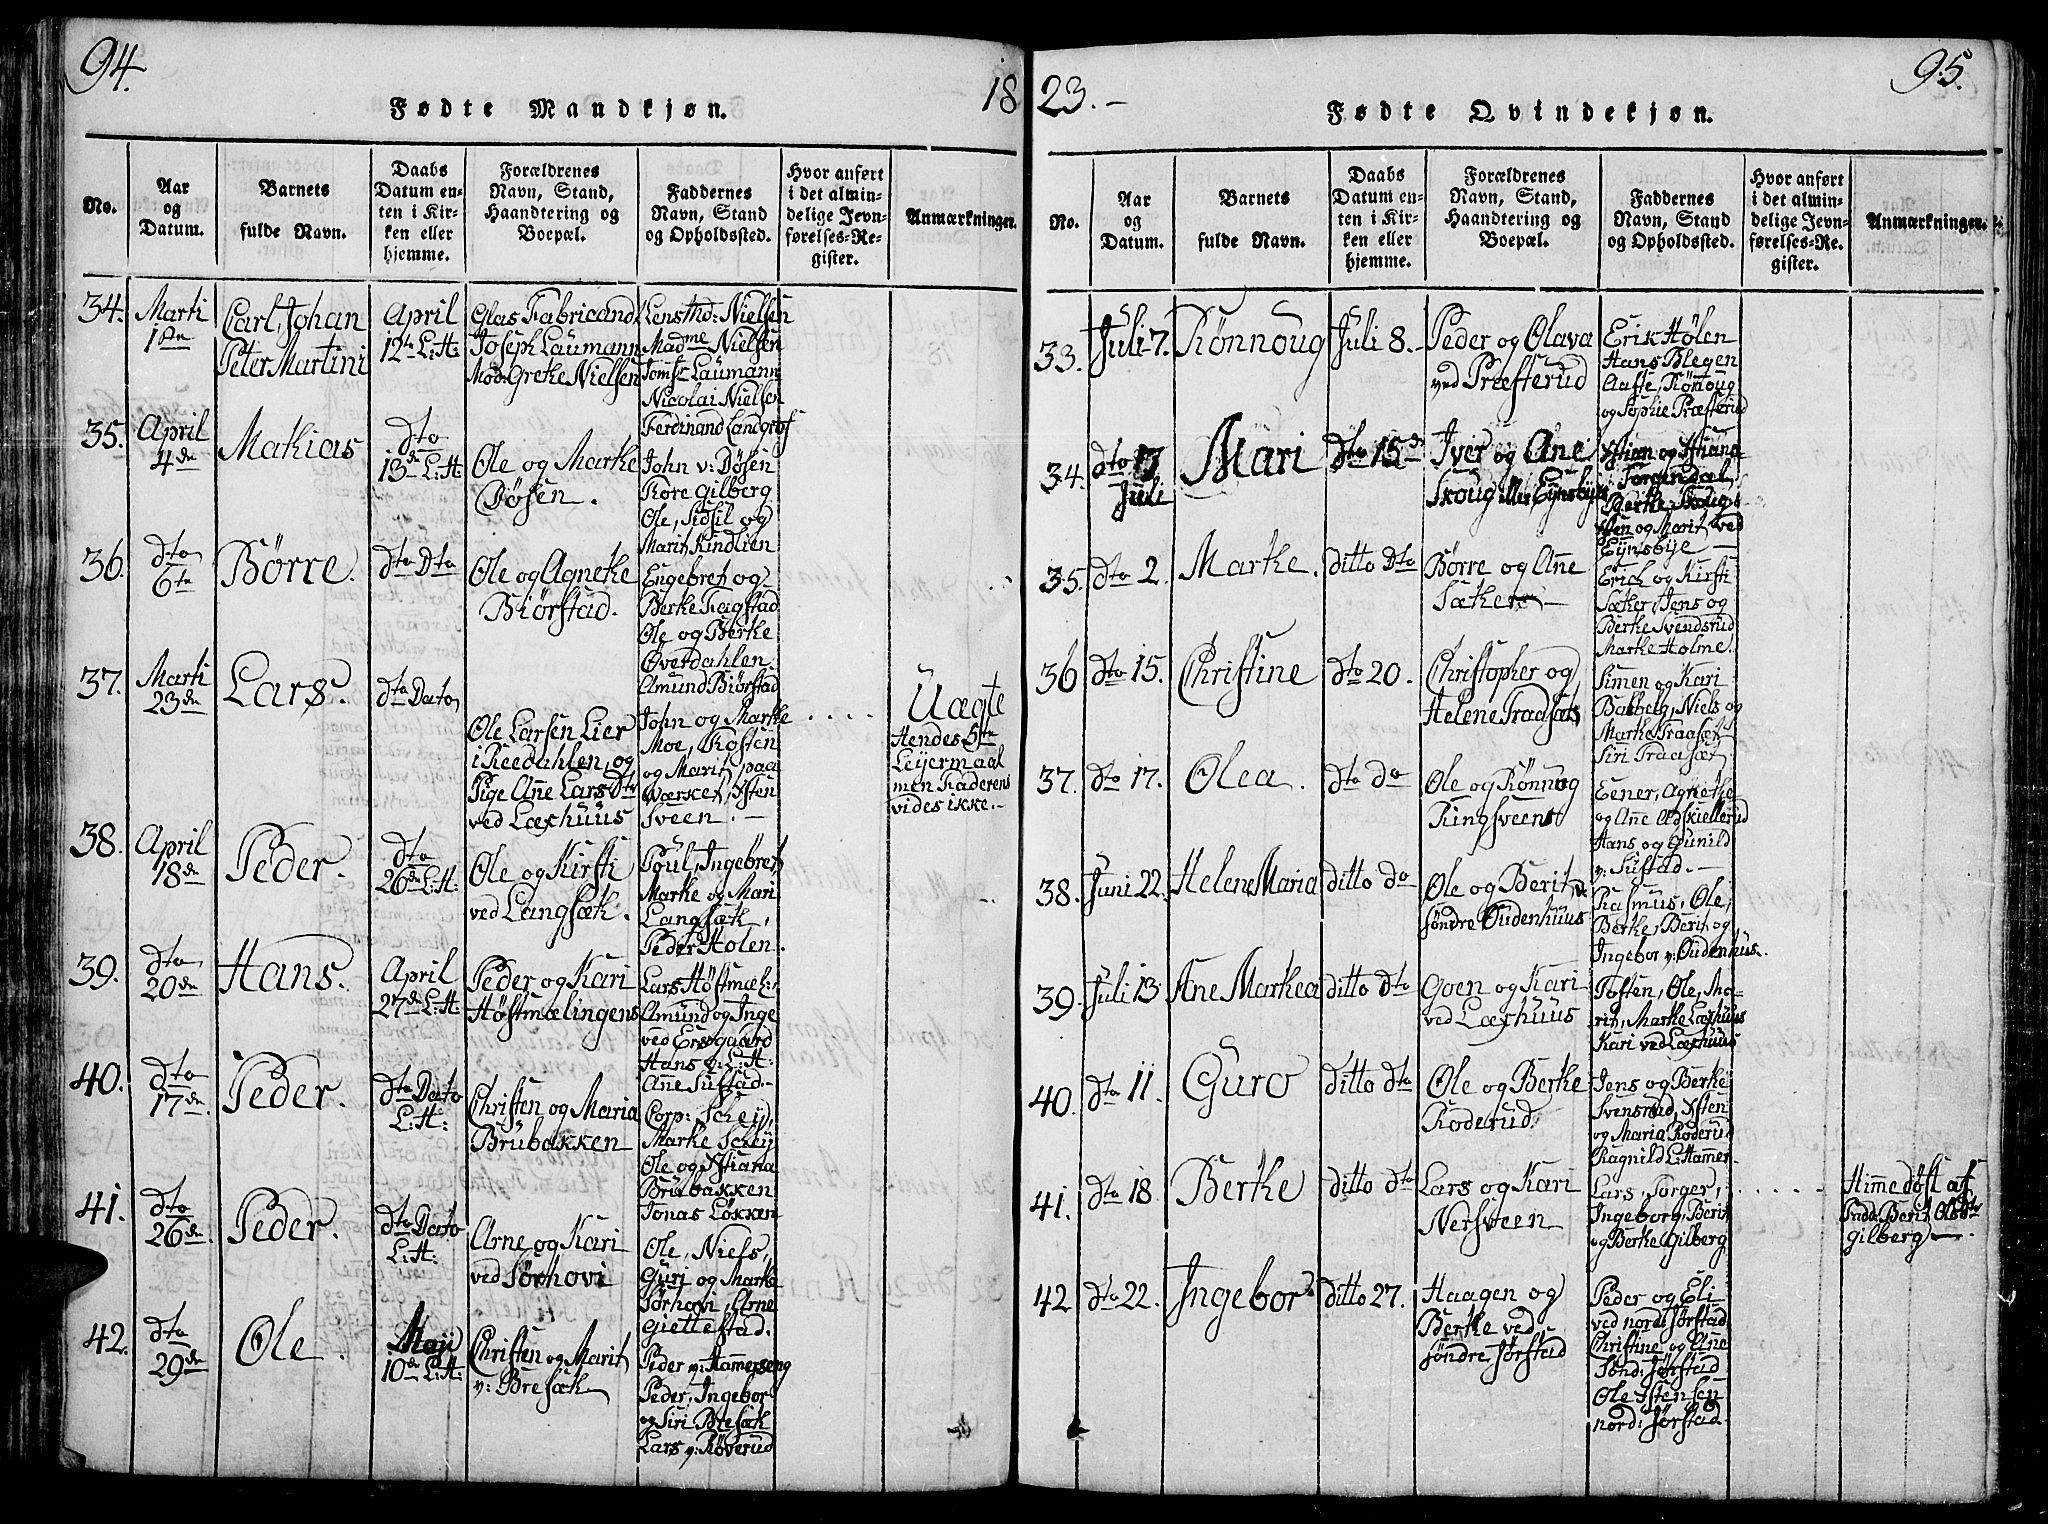 94.
18
Fødte Mandkjøn.
No.
Aar
og
Datum.
Barnets
fulde Navn.
Daabs
Datum en-
ten i Kir-
ken eller
hjemme.
Forældrenes
Navn, Stand,
Haandtering og
Boepæl.
Faddernes
Navn, Stand
og Opholdssted.
Hvor anført
i det almin-
delige Jevn-
førelses-Re-
gister.
Anmærkninger.
34.
Marti
1ste
Carl Johan
Peter Martini
April
12te L:H:
Glas Fabricand
Joseph Laumann
Mod: Grethe Nielsen
Lensmd: Nielsen
Madme Nielsen
Jomfr Laumann
Nicolai Nielsen
Ferdinand Landgrof
35.
April
4de
Mathias
Dto
13de L:H
Ole og Marthe
Døsen.
John v: Døsen
Tore Gilberg
Ole, Sidsil og
Marit Kindlien
36.
Dto
6te
Børre.
Dto Dto
Ole og Agnethe
Biørstad.
Engebret og
Berthe Fagstad
Ole og Berthe
Øverdahlen.
Amund Biørstad
37.
Marti
23de
Lars.
Dto Dato
Ole Larsen Lier
i Reedahlen, og
Pige Anne Lars Dtr
ved Læxhuus
John og Marthe
Moe, Tosten
og Marit paa
Værket, Xsten
Sveen.
. . . .
Uægte
Hendes 5te
Leyermaal
men Faderens
vides ikke.
38.
April
18de
Peder.
Dto
26de L:H:
Ole og Kirsti
ved Langsæth.
Poul, Ingebret
Marthe og Mari
Langsæth,
Peder Holen.
39.
Dto
20de
Hans.
April
27de L:H.
Peder og Kari
Høstmælingens
Lars Høstmæl:
Amund og Inge
ved Ersgaard
Hans v: L:H:
Anne Sustad.
40.
Dto
17de
Peder.
Dto Dato
L:H:
Christen og Maria
Brubakken
Corp: Schey,
Marthe Schey
Ole og Xstiana
Brubakken
Jonas Løkken
41.
Dto
26de
Peder.
Dto Dato
L:H:
Arne og Kari
ved Sørhovi
Ole, Niels,
Guri og Marthe
Sørhovi, Arne
Giettestad.
42.
Dto
29de
Ole.
Maji
10de L:H:
Christen og Marit
v: Bresæth
Peder v: Hammerseng
Peder, Ingebor
og Siri Bresæth
Lars v: Røverud
95.
23.
Fødte Qvindekjøn.
No.
Aar
og
Datum.
Barnets
fulde Navn.
Daabs
Datum en-
ten i Kir-
ken eller
hjemme.
Forældrenes
Navn, Stand,
Haandtering og
Boepæl.
Faddernes
Navn, Stand
og Opholdssted.
Hvor anført
i det almin-
delige Jevn-
førelses-Re-
gister.
Anmærkninger.
33.
Juli 7.
Rønnoug
Juli 8.
Peder og Olava
ved Præsterud
Erik Hølen
Hans Blegen
Aasse, Rønoug
og Sophie Præsterud
34.
Dto 13
Juli
Mari
Dto 15de
Iver og Ane
Skoug eller Eynsbye
Xstian og Xstiana
Forgindal
Berthe Skoug
Xsten og Marit ved
Eynsbye
35.
Dto 2.
Marthe.
ditto Dto
Børre og Ane
Sæther
Erich og Kirsti
Sæther, Jens og
Berthe Svendsrud
Marthe Holme.
36
Dto 15.
Christine
Dto 20.
Christopher og
Helene Traasæts
Simen og Kari
Bakberg, Niels og
Marthe Traaset
Siri Traaset
37.
Dto 17.
Olea.
Dto Do
Ole og Rønnog
Ringsveens
Eener, Agnethe
og Ane Ædskiellerud
Hans og Gunild
v: Sustad.
38.
Juni 22.
Helene Maria
ditto Do
Ole og Berit v:
søndre Oudenhuus
Rasmus, Ole,
Berthe, Berit og
Ingebor v: Oudenhuus.
39.
Juli 13.
Ane Marthea
ditto Dto
Goen og Kari
ved Læxhuus
Tosten, Ole, Ma-
rit, Marthe Læxhuus
Kari ved Læxhuus
40.
Dto 11.
Guro
ditto Dto
Ole og Berthe
Roderud.
Jens og Berthe
Svensrud, Xsten
og Maria Roderud
Ragnild L: Hammer
41.
Dto 18.
Berthe
ditto Dto
Lars og Kari
Nersveen
Lars, Torger,
Ingeborg, Berit
og Berthe Gilberg
. . . . .
Himmedøst af
Fadd: Berit Olsdtr
Gilberg
42
Dto 22.
Ingebor.
ditto 27.
Haagen og
Berthe ved
søndre Jørstad
Peder og Eli
ved nord: Jørstad
Christine og Ane
Sønd: Jørstad
Ole Istensen
nord: Jørstad.